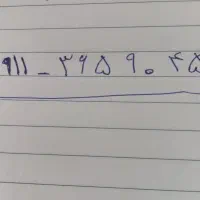 ۹۱۱ - ۳۶۵ ۹۰ ۴۵